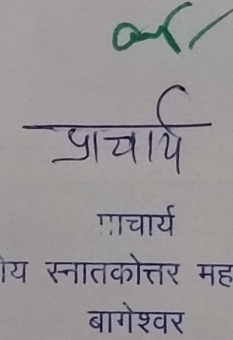 प्राचार्य
प्राचार्य
ीय स्नातकोत्तर मह
बागेश्वर